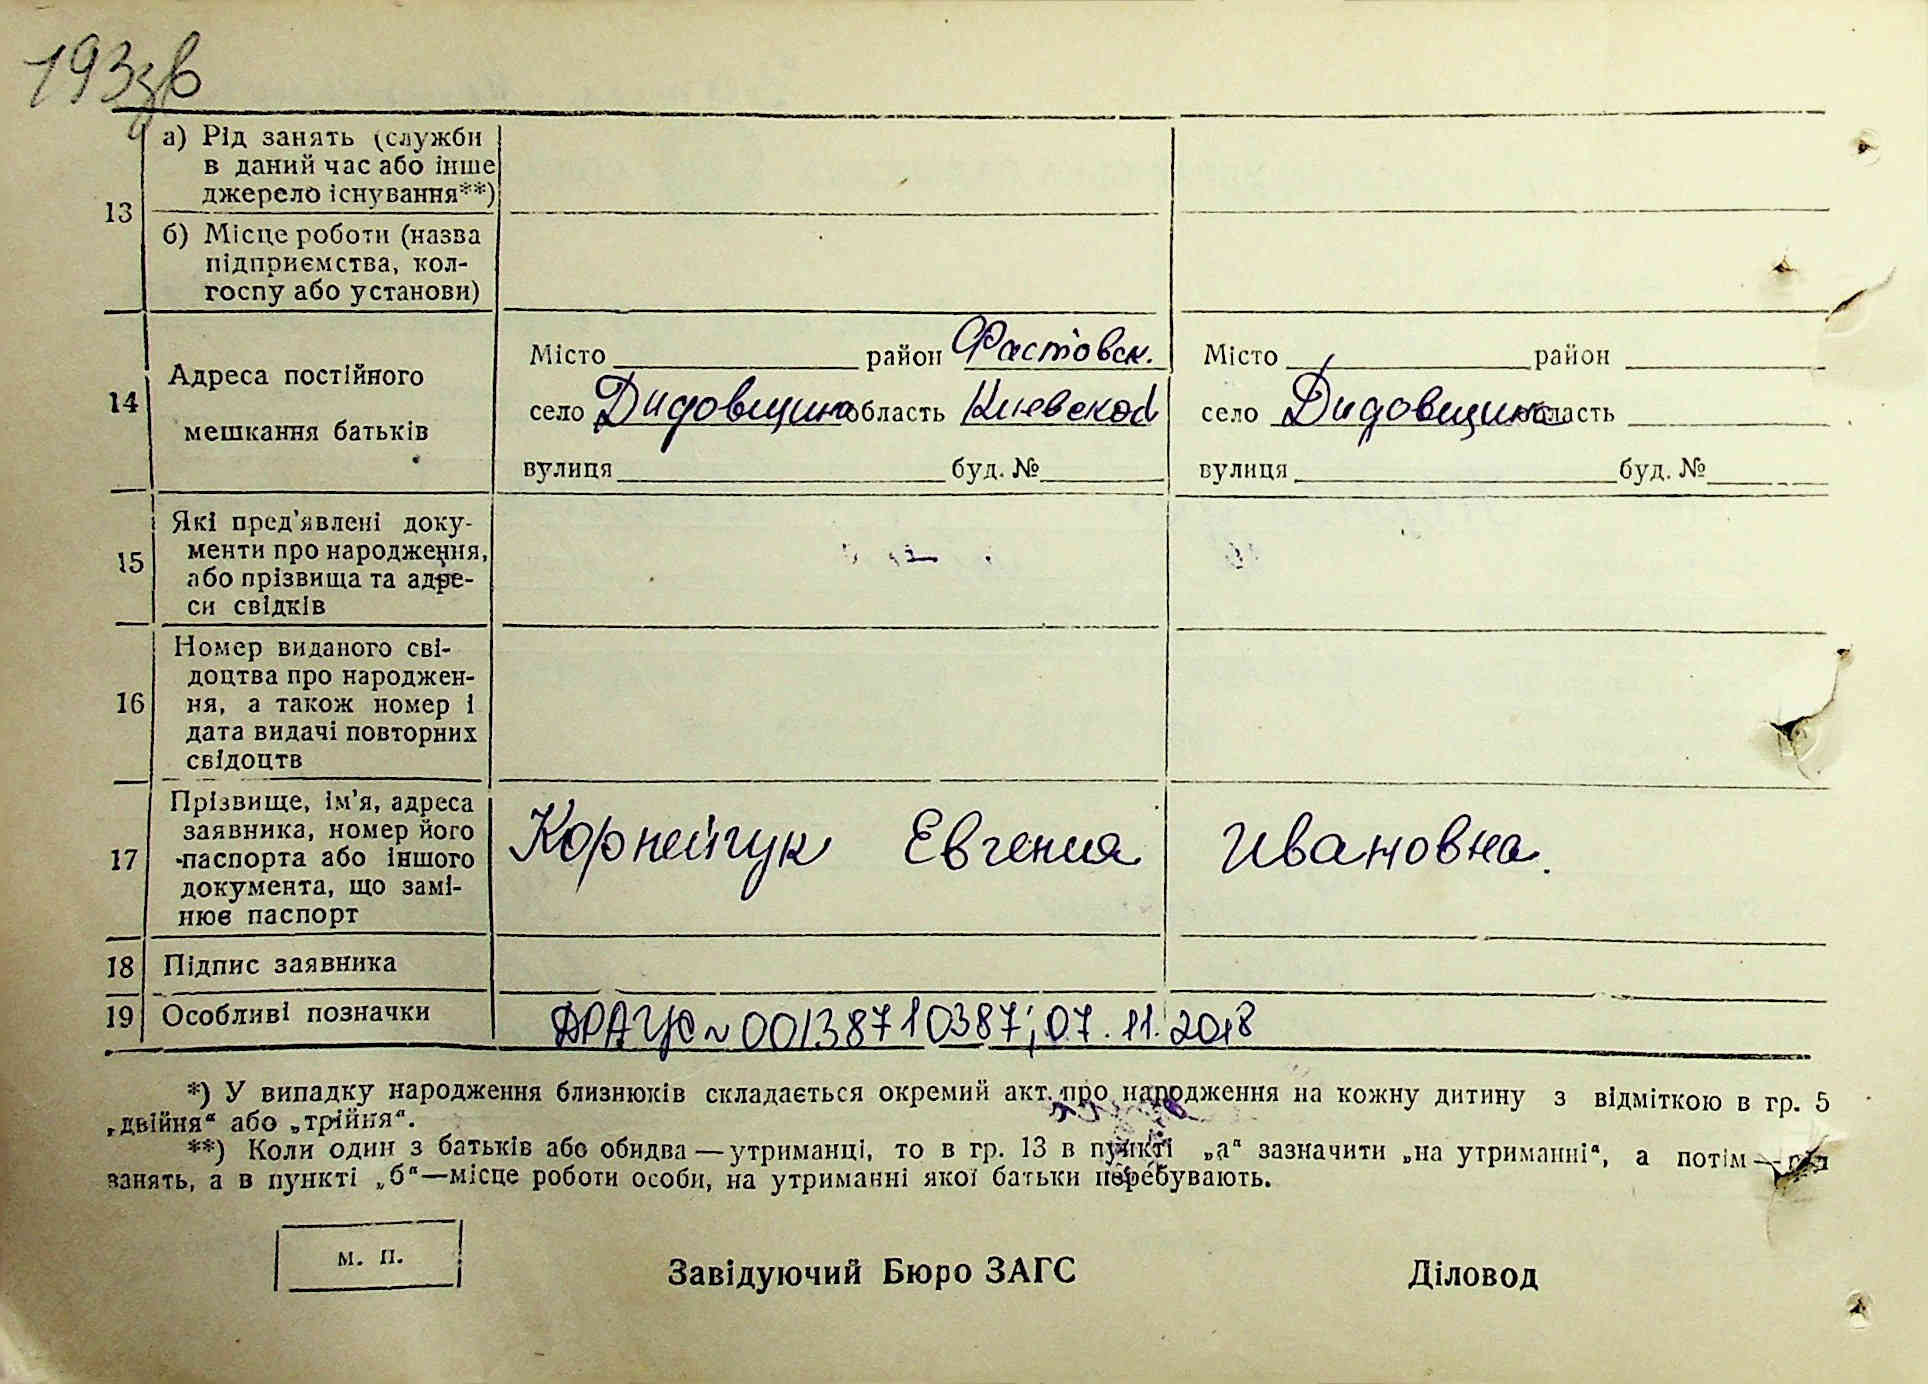 193зв
13 а) Рід занять (служби
в даний час або інше
джерело існування**)
б) Місце роботи (назва
підприємства, кол-
госпу або установи)
14 Адреса постійного
мешкання батьків
Місто район Фастовск.
село Дидовщина область Киевской
вулиця буд. №
Місто район
село Дидовщина область
вулиця буд. №
15 Які пред'явлені доку-
менти про народження,
або прізвища та адре-
си свідків
16 Номер виданого сві-
доцтва про народжен-
ня, а також номер і
дата видачі повторних
свідоцтв
17 Прізвище, ім'я, адреса
заявника, номер його
паспорта або іншого
документа, що замі-
нює паспорт
Корнейчук Евгения Ивановна.
18 Підпис заявника
19 Особливі позначки ДРАЦС № 00138710387; 07.11.2018
*) У випадку народження близнюків складається окремий акт про народження на кожну дитину з відміткою в гр. 5
„двійня“ або „трійня“.
**) Коли один з батьків або обидва — утриманці, то в гр. 13 в пункті „а“ зазначити „на утриманні“, а потім —
занять, а в пункті „б“—місце роботи особи, на утриманні якої батьки перебувають.
м. п.
Завідуючий Бюро ЗАГС Діловод